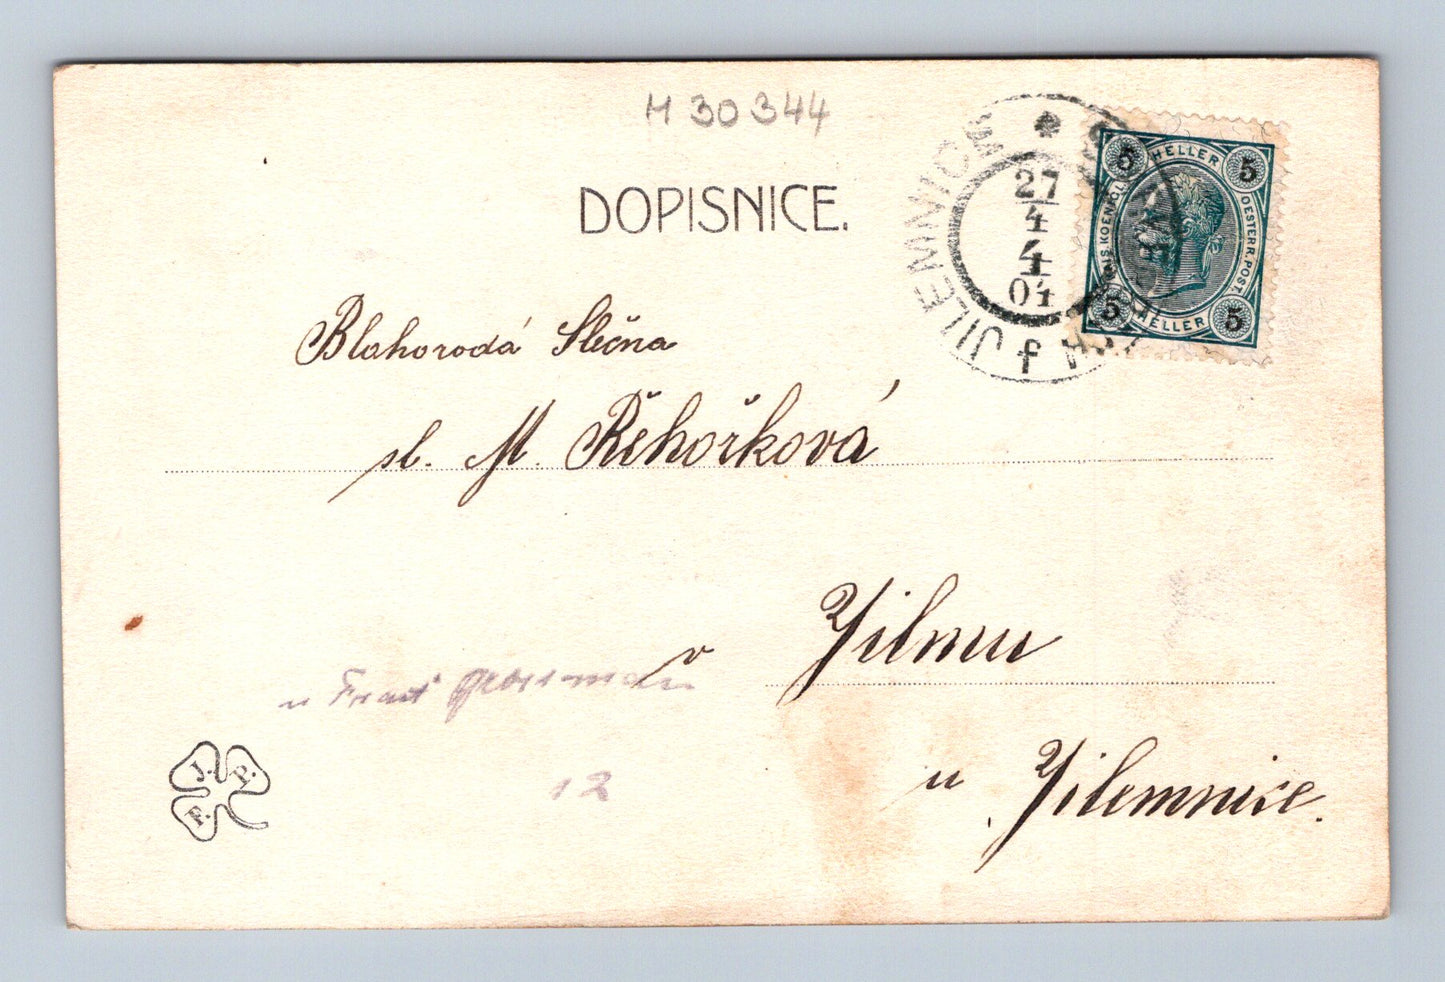 H 30344
DOPISNICE.
* JILEMNICE
27
4
4
04
f
5 HELLER 5
OESTERR. POST.
5 HELLER 5
Blahorodá Slečna
sl. M. Řehořková
v Jilmu
u Jilemnice.
12
J. P. P.